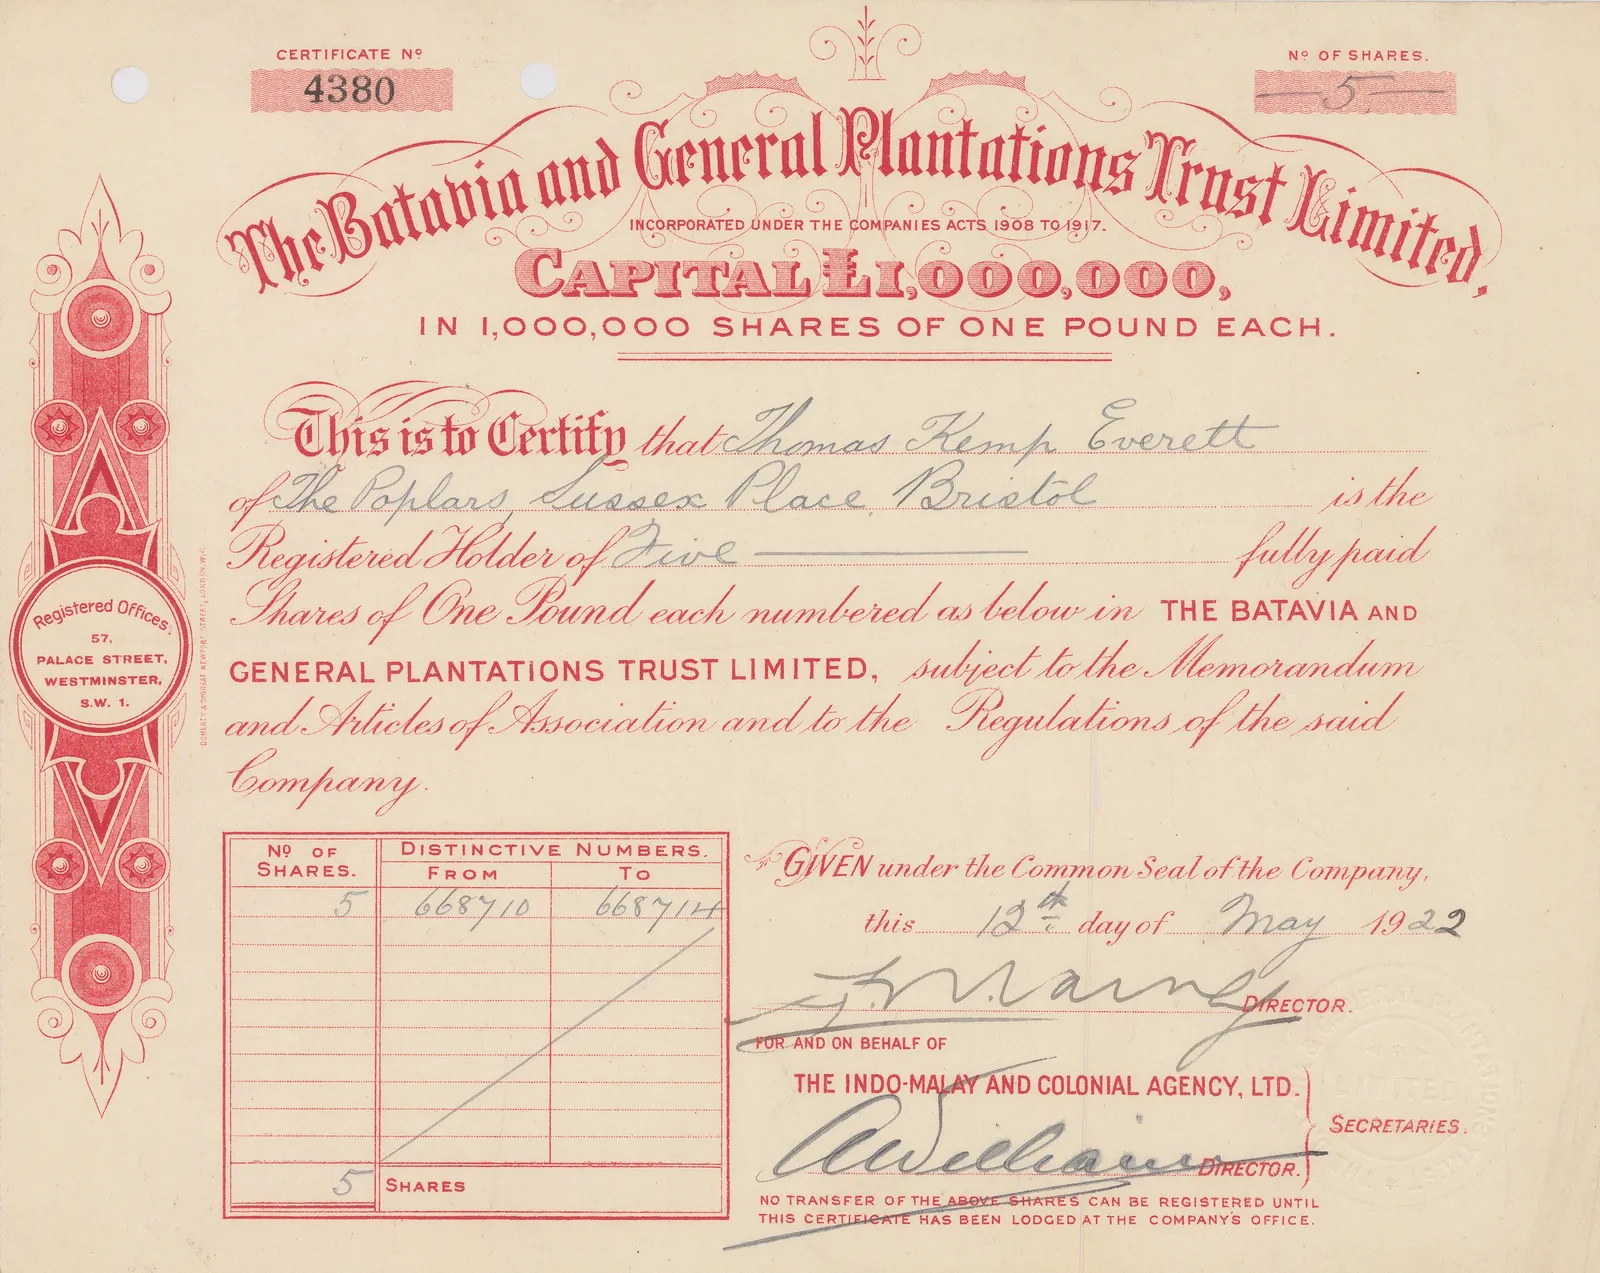 CERTIFICATE Nº
4380
Nº OF SHARES.
5
The Batavia and General Plantations Trust Limited.
INCORPORATED UNDER THE COMPANIES ACTS 1908 TO 1917.
CAPITAL £1,000,000,
IN 1,000,000 SHARES OF ONE POUND EACH.
This is to Certify that Thomas Kemp Everett
of The Poplars, Sussex Place, Bristol is the
Registered Holder of Five fully paid
Shares of One Pound each numbered as below in THE BATAVIA AND
GENERAL PLANTATIONS TRUST LIMITED, subject to the Memorandum
and Articles of Association and to the Regulations of the said
Company.
Registered Offices.
57,
PALACE STREET,
WESTMINSTER,
S.W. 1.
Nº OF SHARES. DISTINCTIVE NUMBERS.
FROM TO
5 668710 668714
5 SHARES
GIVEN under the Common Seal of the Company,
this 12th day of May 1922
DIRECTOR.
FOR AND ON BEHALF OF
THE INDO-MALAY AND COLONIAL AGENCY, LTD.
SECRETARIES.
DIRECTOR.
NO TRANSFER OF THE ABOVE SHARES CAN BE REGISTERED UNTIL
THIS CERTIFICATE HAS BEEN LODGED AT THE COMPANY'S OFFICE.